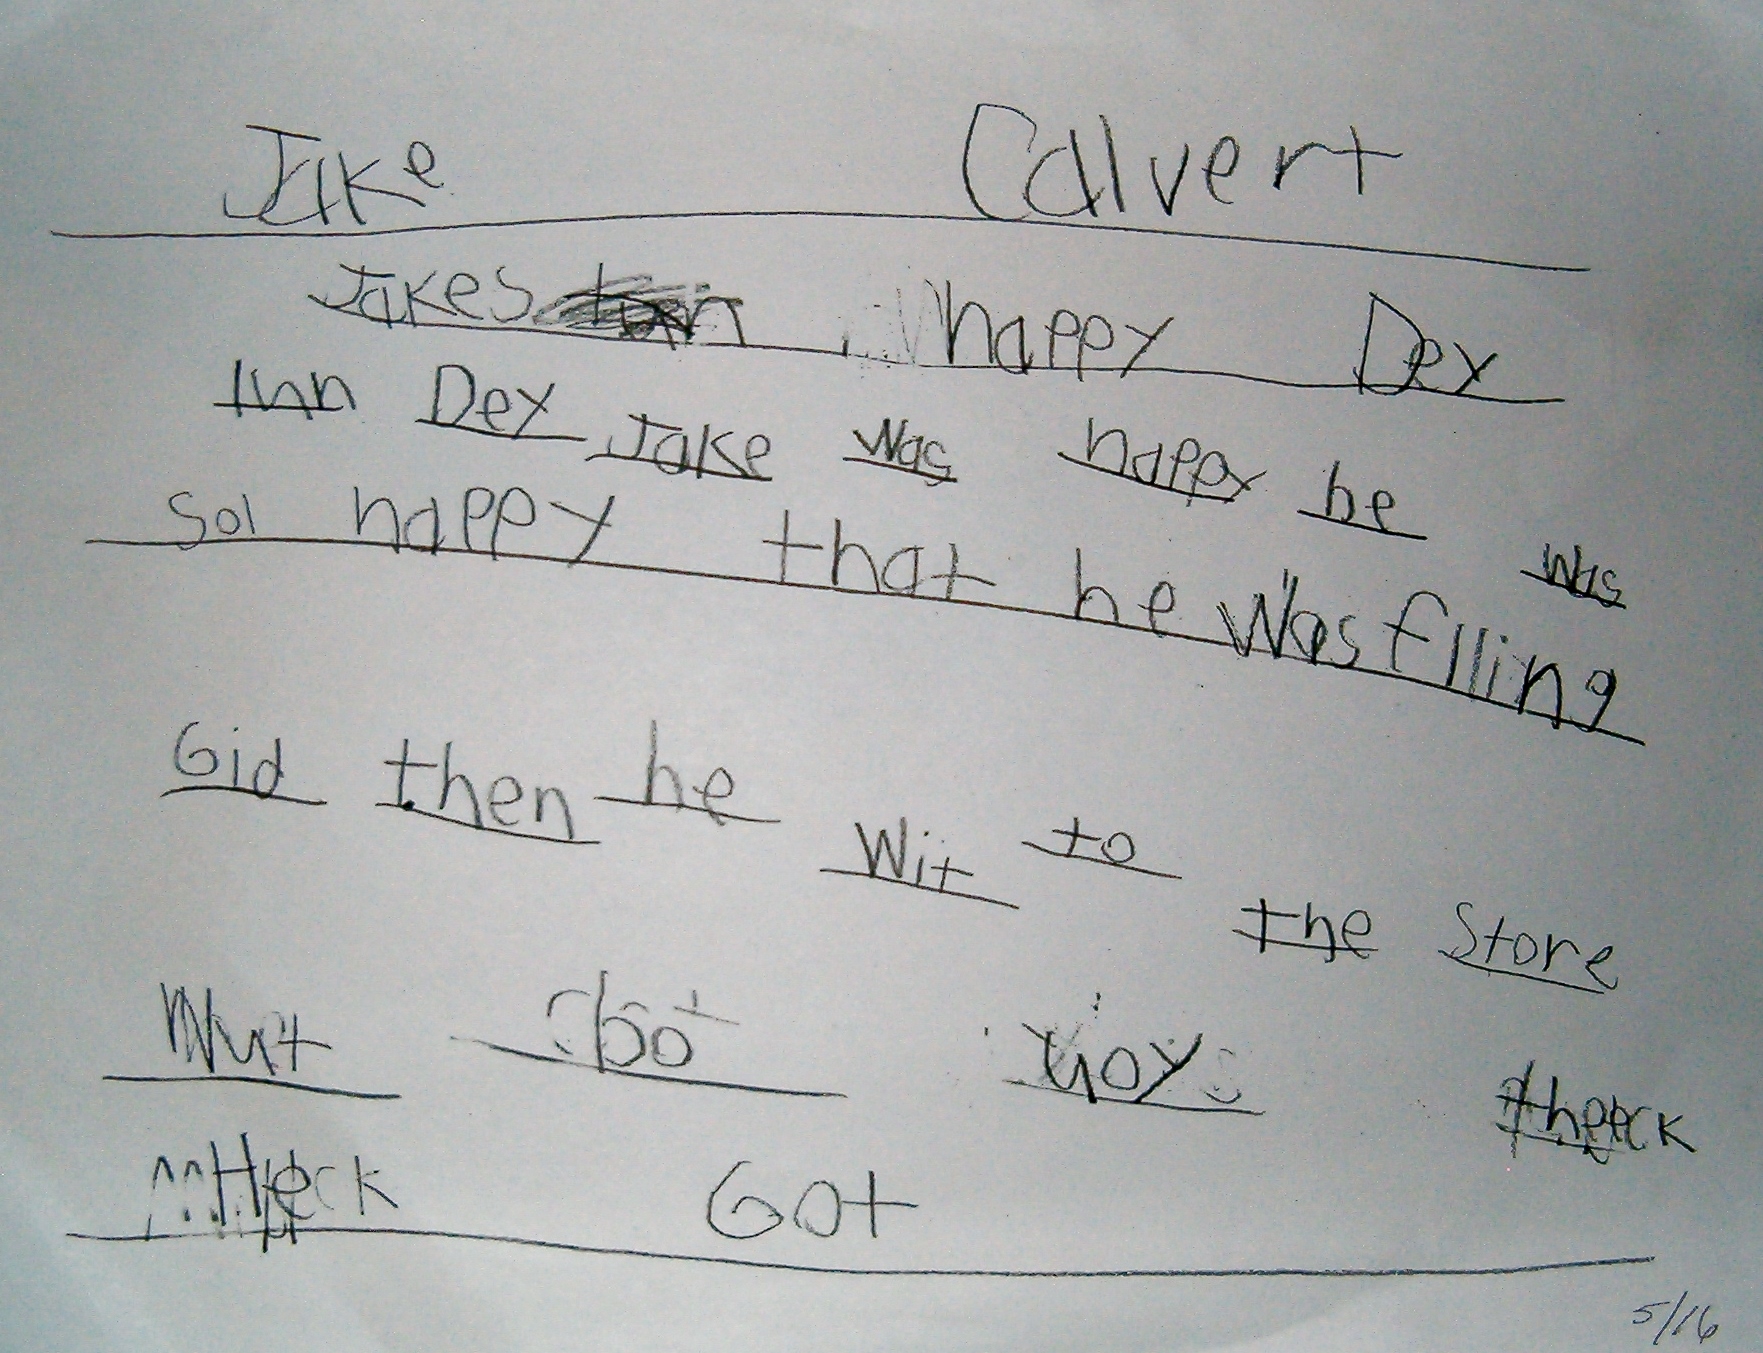 Jake Calvert
Jakes happy Dey
Inn Dey Jake was happy he was
Sol happy that he Was flling
Gid then he Wit to the Store
Wut boy
Got
5/16